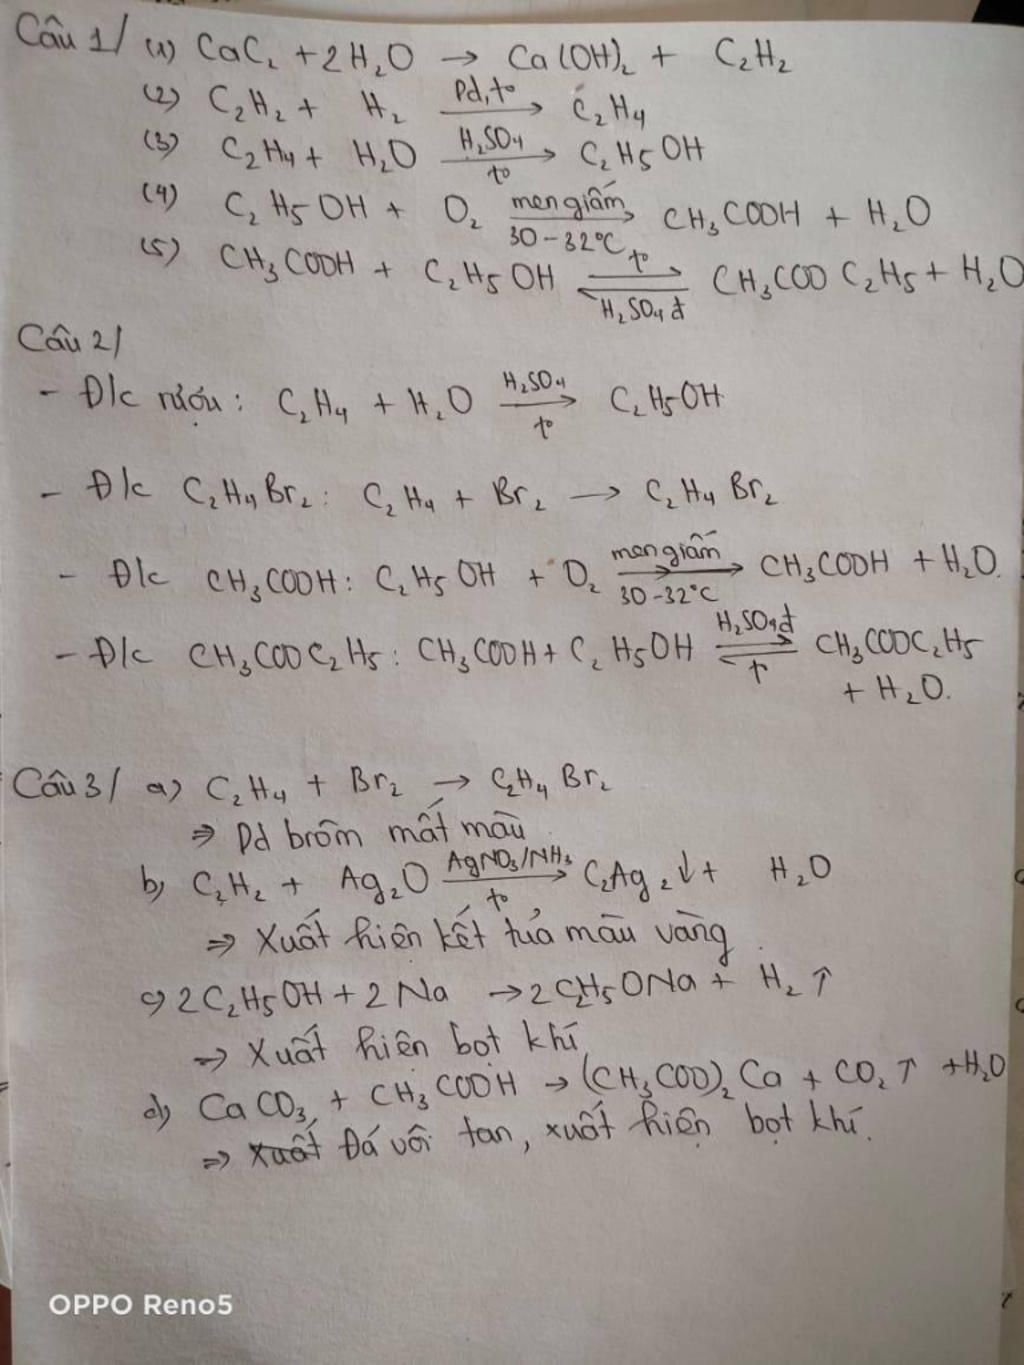 Câu 1/ (1) CaC₂ + 2H₂O → Ca(OH)₂ + C₂H₂
(2) C₂H₂ + H₂ →(Pd, t°) C₂H₄
(3) C₂H₄ + H₂O →(H₂SO₄, t°) C₂H₅OH
(4) C₂H₅OH + O₂ →(men giấm, 30-32°C) CH₃COOH + H₂O
(5) CH₃COOH + C₂H₅OH ⇌(t°, H₂SO₄ đ) CH₃COOC₂H₅ + H₂O
Câu 2/
- Đ/c rượu: C₂H₄ + H₂O →(H₂SO₄, t°) C₂H₅OH
- Đ/c C₂H₄Br₂: C₂H₄ + Br₂ → C₂H₄Br₂
- Đ/c CH₃COOH: C₂H₅OH + O₂ →(men giấm, 30-32°C) CH₃COOH + H₂O.
- Đ/c CH₃COOC₂H₅: CH₃COOH + C₂H₅OH ⇌(H₂SO₄đ, t°) CH₃COOC₂H₅
+ H₂O.
Câu 3/ a) C₂H₄ + Br₂ → C₂H₄Br₂
⇒ Dd brôm mất màu
b) C₂H₂ + Ag₂O →(AgNO₃/NH₃, t°) C₂Ag₂↓ + H₂O
⇒ Xuất hiện kết tủa màu vàng.
c) 2C₂H₅OH + 2Na → 2C₂H₅ONa + H₂↑
⇒ Xuất hiện bọt khí
d) CaCO₃ + CH₃COOH → (CH₃COO)₂Ca + CO₂↑ + H₂O
⇒ Đá vôi tan, xuất hiện bọt khí.
OPPO Reno5